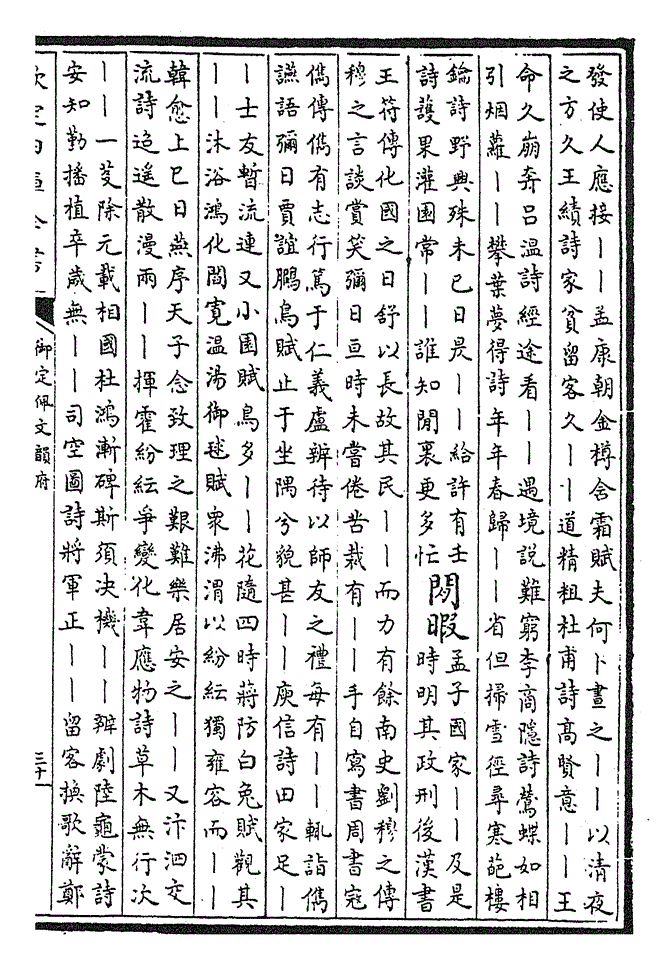 發使人應接——孟康朝金樽含霜賦夫何卜晝之——以清夜
之方久王績詩家貧留客久——道精粗杜甫詩髙賢意——王
命久崩奔呂温詩經途看——遇境說難窮李商隱詩鶯蝶如相
引烟蘿——攀葉夢得詩年年春歸——省但掃雪徑尋寒葩樓
鑰詩野興殊未已日昃——給許有壬
詩護果灌園常——誰知閒裏更多忙
閒暇
孟子國家——及是
時明其政刑後漢書
王符傳化國之日舒以長故其民——而力有餘南史劉穆之傳
穆之言談賞笑彌日亘時未嘗倦苦裁有——手自寫書周書宼
儁傳儁有志行篤于仁義盧辯待以師友之禮每有——輒詣儁
讌語彌日賈誼鵩鳥賦止于坐隅兮貌甚——庾信詩田家足—
—士友暫流連又小園賦鳥多——花隨四時蔣防白兔賦觀其
——沐浴鴻化閻寛温湯御毬賦衆沸渭以紛紜獨雍容而——
韓愈上巳日燕序天子念致理之艱難樂居安之——又汴泗交
流詩迢遥散漫兩——揮霍紛紜爭變化韋應物詩草木無行次
——一芟除元載相國杜鴻漸碑斯須决機——辨劇陸龜蒙詩
安知勤播植卒歲無——司空圖詩將軍正——留客換歌辭鄭
欽定四庫全書
御定佩文韻府
三十一